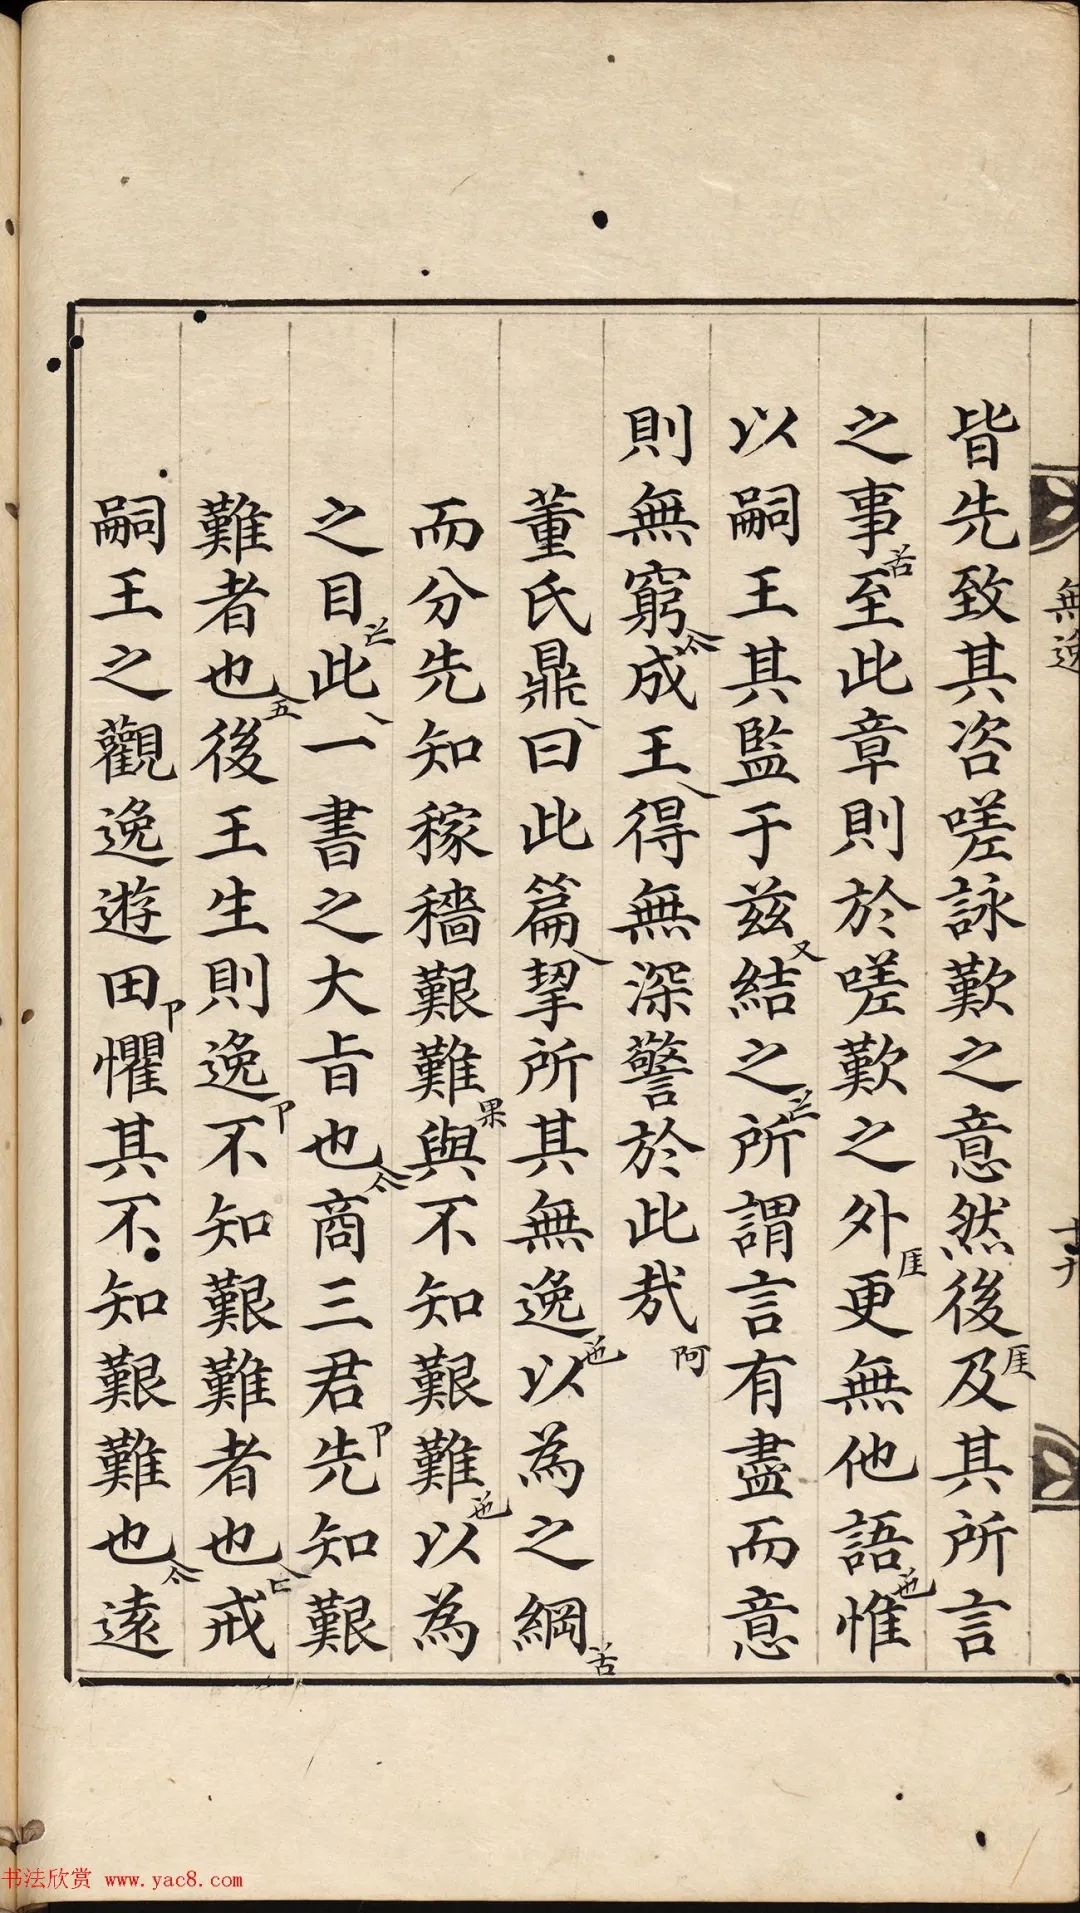 無逸
皆先致其咨嗟詠歎之意然後及其所言
之事至此章則於嗟歎之外更無他語惟
以嗣王其監于兹結之所謂言有盡而意
則無窮成王得無深警於此哉
董氏鼎曰此篇挈所其無逸以為之綱
而分先知稼穡艱難與不知艱難以為
之目此一書之大旨也商三君先知艱
難者也後王生則逸不知艱難者也戒
嗣王之觀逸遊田懼其不知艱難也遠
书法欣赏 www.yac8.com